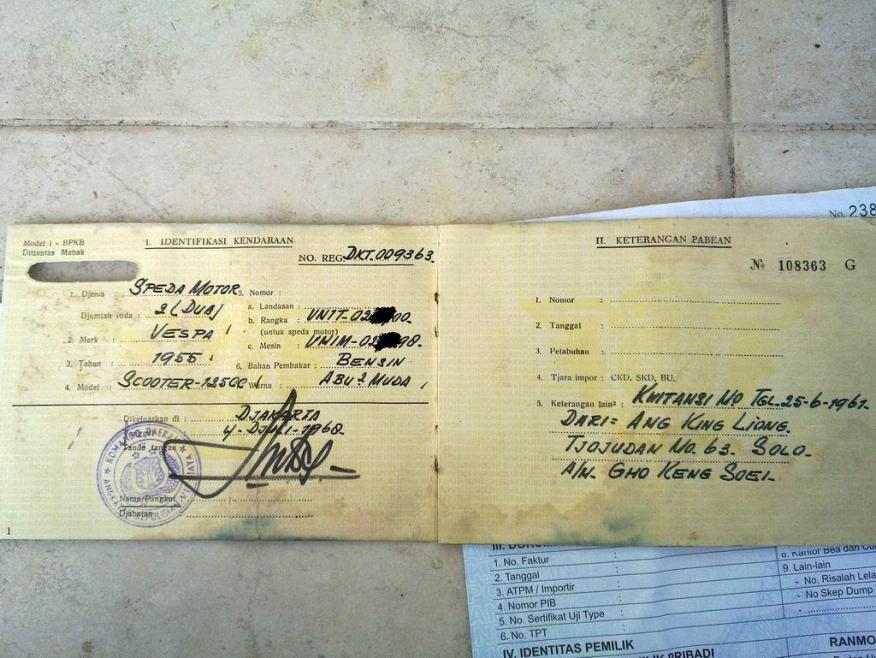 Model 1 - BPKB
Ditlantas Mabak
I. IDENTIFIKASI KENDARAAN
NO. REG. DKT.009363.
1. Djenis : SPEDA MOTOR
Djumlah roda : 2 (DUA)
2. Merk : VESPA
3. Tahun : 1955
4. Model : SCOOTER-125CC
5. Nomor :
a. Landasan :
b. Rangka : VN1T-02 00.
(untuk speda motor)
c. Mesin : VN1M-02 98.
6. Bahan Pembakar : BENSIN
Warna : ABU² MUDA
Dikeluarkan di : DJAKARTA
4-DJULI-1968
Tanda tangan
Nama/Pangkat :
Djabatan :
KOMANDO DAERAH
1
II. KETERANGAN PABEAN
No 108363 G
1. Nomor :
2. Tanggal :
3. Pelabuhan :
4. Tjara impor : CKD, SKD, BU.
5. Keterangan lain² : KWITANSI No TGL-25-6-1961.
DARI = ANG KING LIONG.
TJOJUDAN No. 63. SOLO.
A/N. GHO KENG SOEI.
No. 238
1. No. Faktur :
2. Tanggal :
3. ATPM / Importir :
4. Nomor PIB :
5. No. Sertifikat Uji Type :
6. No. TPT :
8. Kantor Bea dan
9. Lain-lain
- No. Risalah Lela
- No Skep Dump
IV. IDENTITAS PEMILIK
RANMO